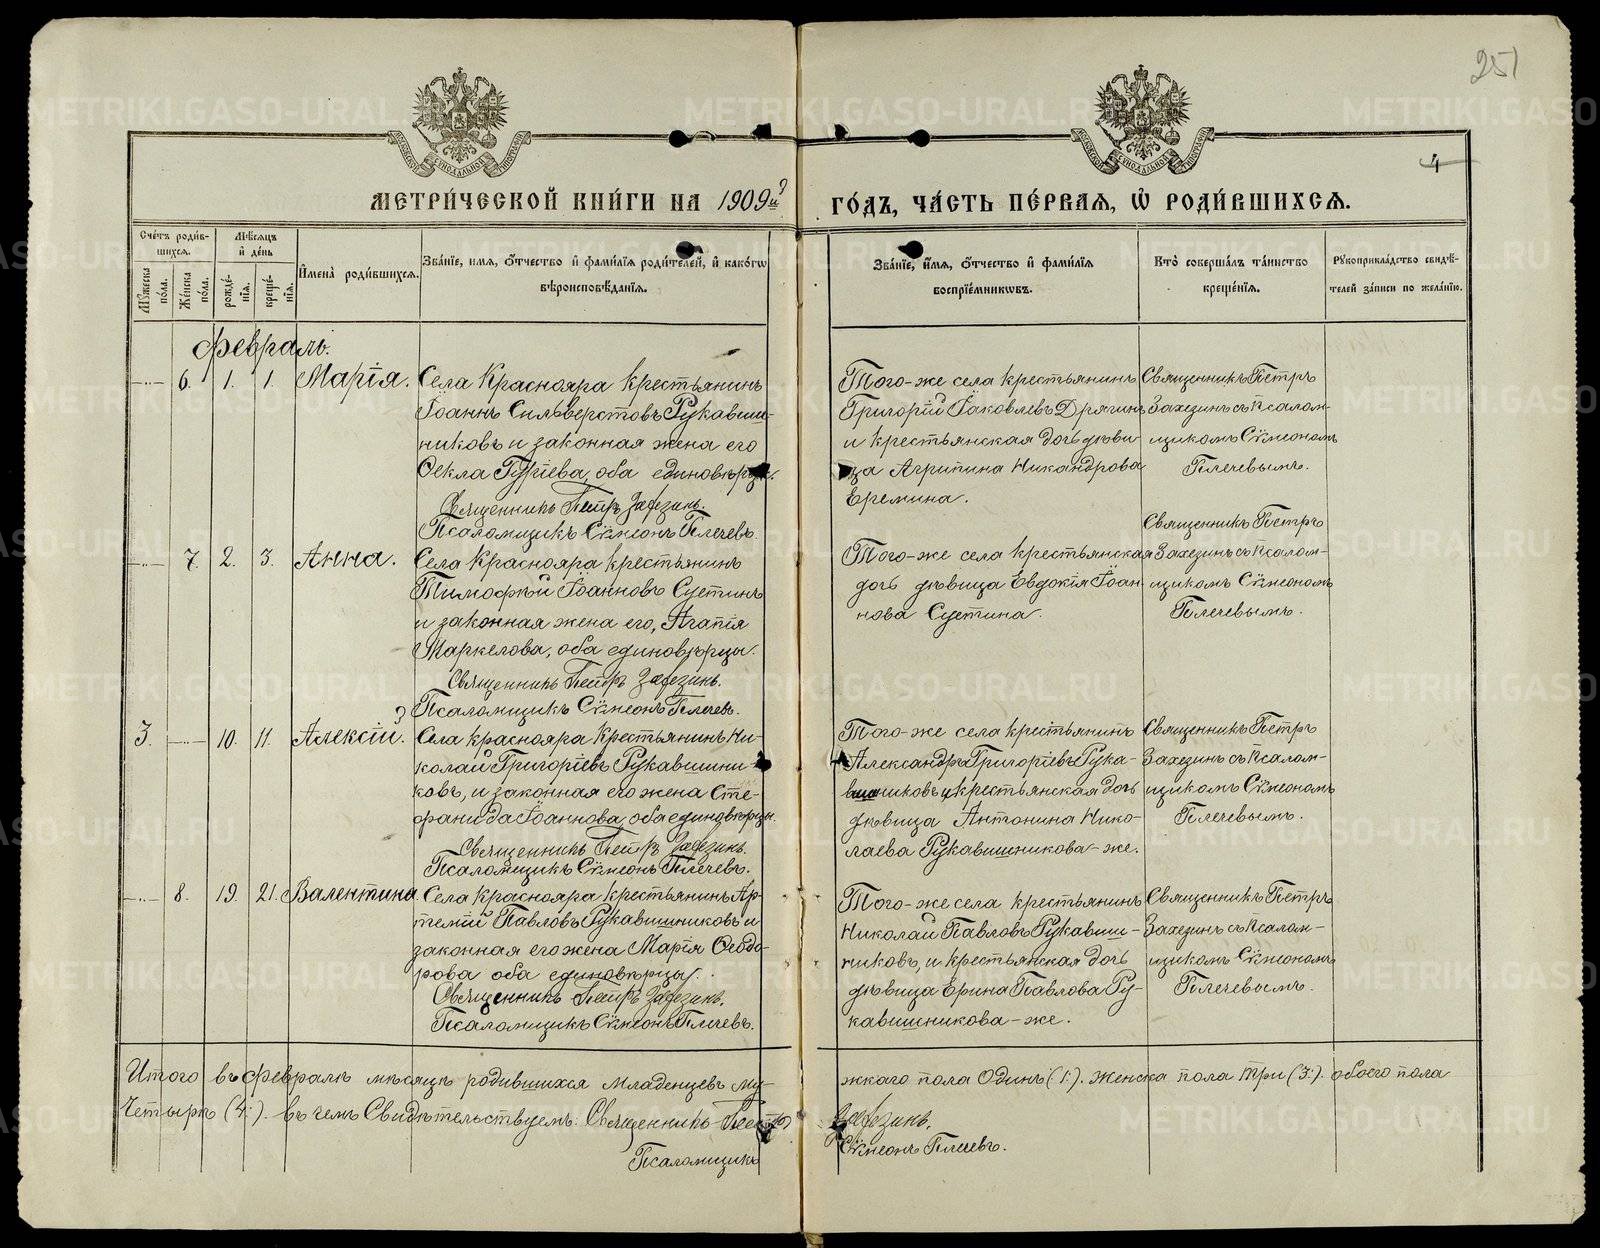 251
4
МОСКОВСКОЙ СѴНОДАЛЬНОЙ ТИПОГРАФІИ
МОСКОВСКОЙ СѴНОДАЛЬНОЙ ТИПОГРАФІИ
МЕТРИ́ЧЕСКОЙ КНИ́ГИ НА 1909й
ГО́ДЪ, ЧА́СТЬ ПЕ́РВАЯ, Ѡ РОДИ́ВШИХСЯ.
Сче́тъ роди́в-
шихся.
Мꙋ́жеска по́ла.
Же́нска по́ла.
Мѣ́сяцъ
и де́нь
рожде́-
нїя.
креще́-
нїя.
И́мена̀ роди́вшихся.
Зва́нїе, и́мя, о́тчество и фами́лїя роди́телей, и како́гѡ
вѣроисповѣ́данїя.
Зва́нїе, и́мя, о́тчество и фами́лїя
воспрїе́мникѡвъ.
Кто̀ соверша́лъ та́инство
креще́нїя.
Рꙋкоприкла́дство свидѣ́-
телей за́писи по жела́нїю.
Февраль.
6. 1. 1. Марія.
Села Краснояра крестьянинъ
Іоаннъ Сильверстовъ Рукавиш-
никовъ и законная жена его
Ѳекла Гуріева, оба единовѣрцы.
Священникъ Петръ Захезинъ.
Псаломщикъ Сѵмеонъ Плечевъ.
Того-же села крестьянинъ
Григорій Іаковлевъ Дрягинъ
и крестьянская дочь дѣви
ца Агрипина Никандрова
Еремина.
Священникъ Петръ
Захезинъ съ псалом-
щикомъ Сѵмеономъ
Плечевымъ.
7. 2. 3. Анна.
Села Краснояра крестьянинъ
Тимофѣй Іоанновъ Суетинъ
и законная жена его, Агапія
Маркелова, оба единовѣрцы.
Священникъ Петръ Захезинъ.
Псаломщикъ Сѵмеонъ Плечевъ.
Того-же села крестьянская
дочь дѣвица Евдокія Іоан-
нова Суетина.
Священникъ Петръ
Захезинъ съ псалом-
щикомъ Сѵмеономъ
Плечевымъ.
3. 10. 11. Алексій.
Села Краснояра крестьянинъ Ни-
колай Григоріевъ Рукавишни-
ковъ, и законная его жена Сте-
фанида Іоаннова, оба единовѣрцы.
Священникъ Петръ Захезинъ.
Псаломщикъ Сѵмеонъ Плечевъ.
Того-же села крестьянинъ
Александръ Григоріевъ Рука-
вишниковъ и крестьянская дочь
дѣвица Антонина Нико-
лаева Рукавишникова-же.
Священникъ Петръ
Захезинъ съ псалом-
щикомъ Сѵмеономъ
Плечевымъ.
8. 19. 21. Валентина
Села Краснояра крестьянинъ Ар-
темій Павловъ Рукавишниковъ и
законная его жена Марія Ѳеодо-
рова оба единовѣрцы.
Священникъ Петръ Захезинъ.
Псаломщикъ Сѵмеонъ Плечевъ.
Того-же села крестьянинъ
Николай Павловъ Рукавиш-
никовъ, и крестьянская дочь
дѣвица Ерина Павлова Ру-
кавишникова-же.
Священникъ Петръ
Захезинъ съ псалом-
щикомъ Сѵмеономъ
Плечевымъ.
Итого въ февралѣ мѣсяцѣ родившихся младенцевъ му-
жкаго пола Одинъ (1:). Женска пола три (3:). обоего пола
Четыре (4:). въ чемъ Свидѣтельствуемъ: Священникъ Петръ
Захезинъ.
Псаломщикъ
Сѵмеонъ Плечевъ.